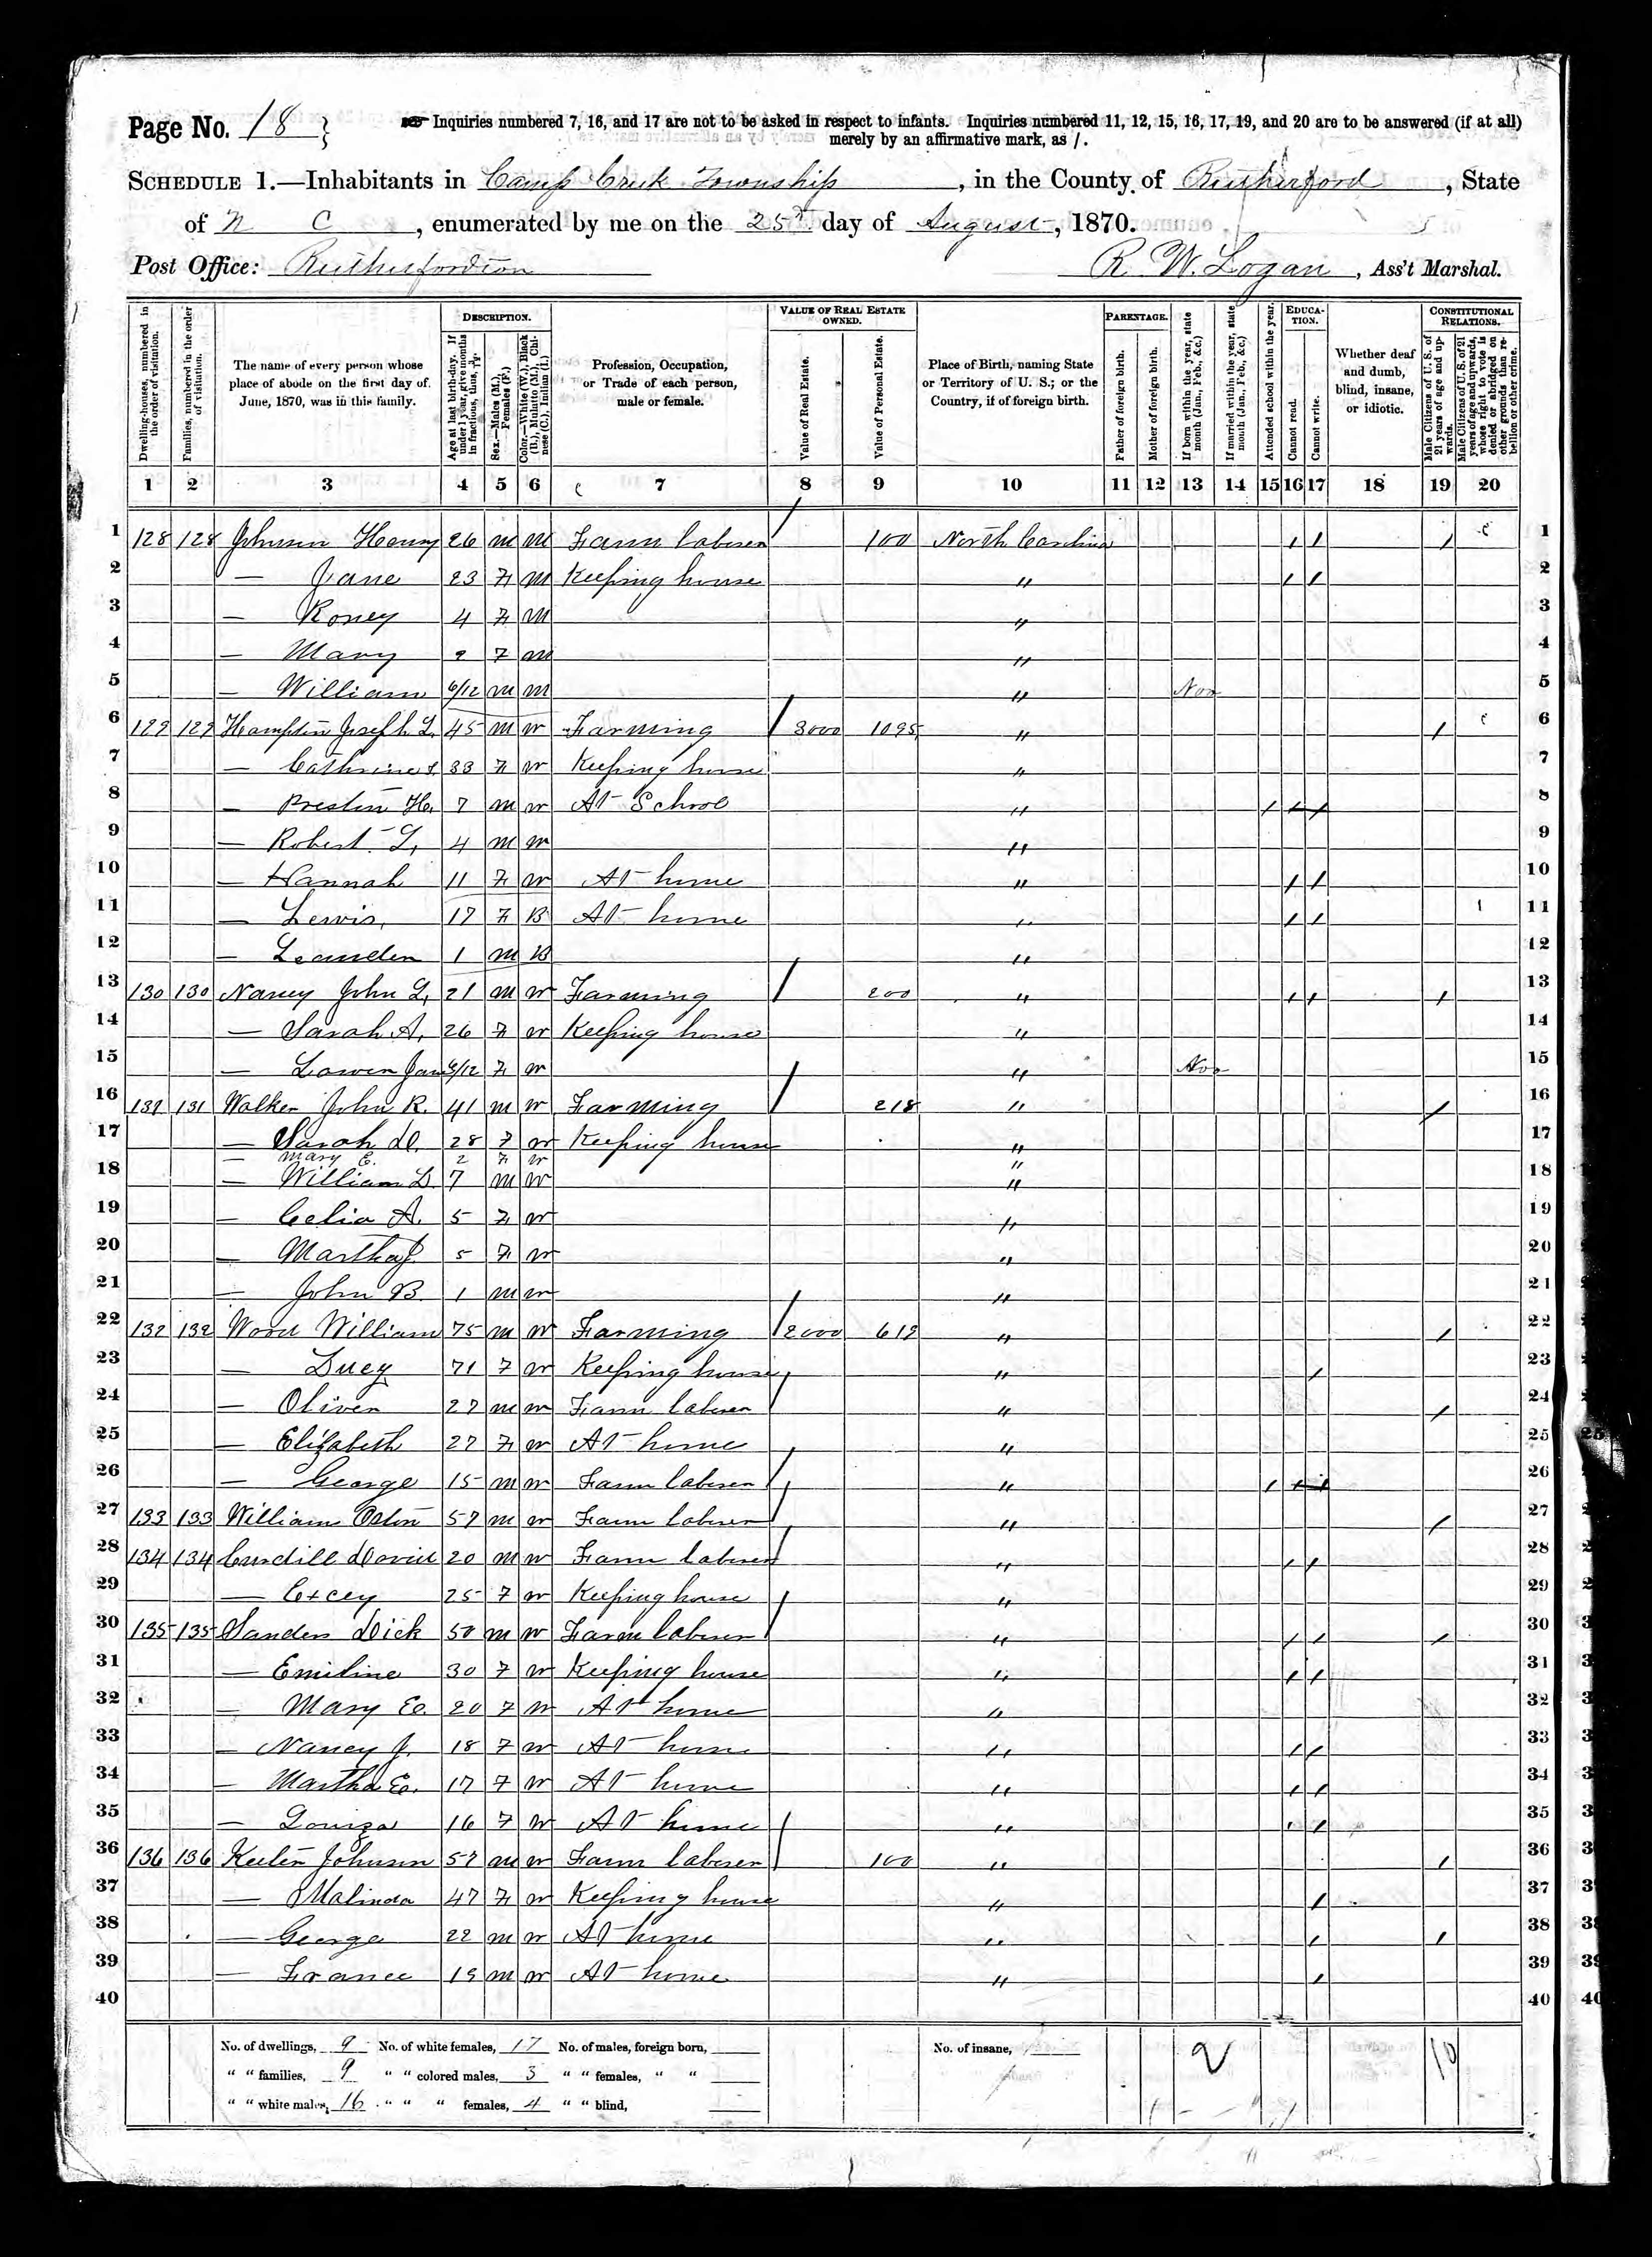 Page No. 18 }
Inquiries numbered 7, 16, and 17 are not to be asked in respect to infants. Inquiries numbered 11, 12, 15, 16, 17, 19, and 20 are to be answered (if at all)
merely by an affirmative mark, as /.
SCHEDULE 1.—Inhabitants in Camp Creek Township, in the County of Rutherford, State
of N C, enumerated by me on the 25th day of August, 1870.
Post Office: Rutherfordton R. W. Logan, Ass't Marshal.
DESCRIPTION. VALUE OF REAL ESTATE OWNED. PARENTAGE. EDUCATION. CONSTITUTIONAL RELATIONS.
Dwelling-houses, numbered in the order of visitation.
Families, numbered in the order of visitation.
The name of every person whose place of abode on the first day of June, 1870, was in this family.
Age at last birth-day. If under 1 year, give months in fractions, thus, 3/12.
Sex.—Males (M.), Females (F.)
Color.—White (W.), Black (B.), Mulatto (M.), Chinese (C.), Indian (I.)
Profession, Occupation, or Trade of each person, male or female.
Value of Real Estate.
Value of Personal Estate.
Place of Birth, naming State or Territory of U. S.; or the Country, if of foreign birth.
Father of foreign birth.
Mother of foreign birth.
If born within the year, state month (Jan., Feb., &c.)
If married within the year, state month (Jan., Feb., &c.)
Attended school within the year.
Cannot read.
Cannot write.
Whether deaf and dumb, blind, insane, or idiotic.
Male Citizens of U. S. of 21 years of age and upwards.
Male Citizens of U. S. of 21 years of age and upwards, whose right to vote is denied or abridged on other grounds than rebellion or other crime.
1 2 3 4 5 6 7 8 9 10 11 12 13 14 15 16 17 18 19 20
1 128 128 Johnson Henry 26 M M Farm laborer 100 North Carolina / / / 1
2 — Jane 23 F M Keeping house " / / 2
3 — Roney 4 F M " 3
4 — Mary 2 F M " 4
5 — William 6/12 M M " Nov 5
6 129 129 Hampton Joseph L. 45 M W Farming 3000 1095 " / 6
7 — Cathrine 33 F W Keeping house " 7
8 — Preston H. 7 M W At School " / / / 8
9 — Robert L. 4 M W " 9
10 — Hannah 11 F W At home " / / 10
11 — Lewis, 17 F B At home " / / 11
12 — Leander 1 M B " 12
13 130 130 Naney John L. 21 M W Farming 200 " / / / 13
14 — Sarah A. 26 F W Keeping house " 14
15 — Jane 6/12 F W " Nov 15
16 131 131 Walker John R. 41 M W Farming 218 " / 16
17 — Sarah D. 28 F W Keeping house " 17
— Mary E. 2 F W "
18 — William D. 7 M W " 18
19 — Celia A. 5 F W " 19
20 — Martha J. 5 F W " 20
21 — John B. 1 M W " 21
22 132 132 Wood William 75 M W Farming 2000 612 " / 22
23 — Lucy 71 F W Keeping house " / 23
24 — Oliver 27 M W Farm laborer " / 24
25 — Elizabeth 27 F W At home " 25
26 — George 15 M W Farm laborer " / / / 26
27 133 133 William 57 M W Farm laborer " / 27
28 134 134 David 20 M W Farm laborer " / / 28
29 — Excey 25 F W Keeping house " 29
30 135 135 Sanders Dick 50 M W Farm laborer " / / / 30
31 — Emiline 30 F W Keeping house " / / 31
32 — Mary E. 20 F W At home " 32
33 — Nancy J. 18 F W At home " / / 33
34 — Martha E. 17 F W At home " / / 34
35 — Louiza 16 F W At home " / / 35
36 136 136 Keeter Johnson 57 M W Farm laborer 100 " / 36
37 — Malinda 47 F W Keeping house " / 37
38 — George 22 M W At home " / / 38
39 — France 19 M W At home " / 39
40 40
No. of dwellings, 9 No. of white females, 17 No. of males, foreign born, No. of insane, 2 10
" " families, 9 " " colored males, 3 " " females, " "
" " white males, 16 " " " females, 4 " " blind,